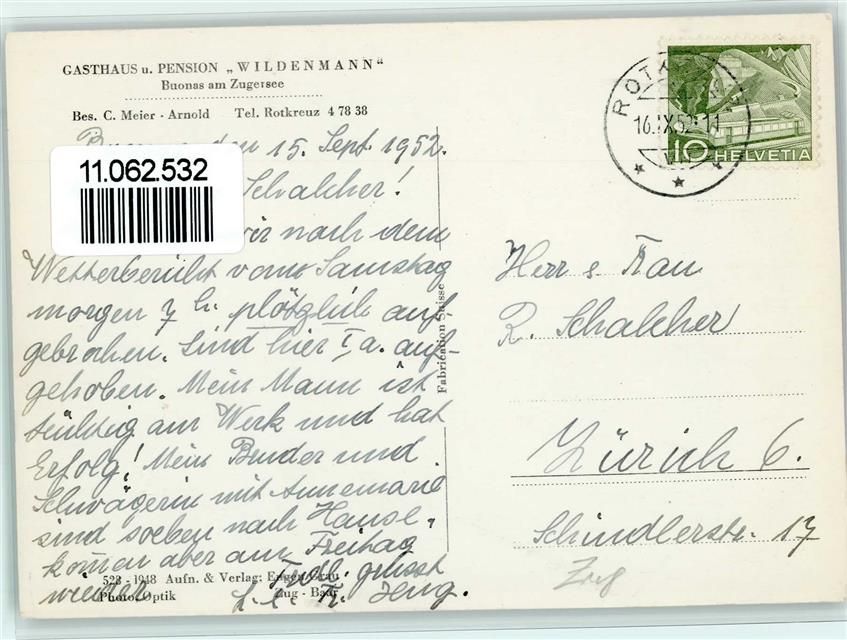 GASTHAUS u. PENSION „WILDENMANN"
Buonas am Zugersee
Bes. C. Meier - Arnold Tel. Rotkreuz 4 78 38
11.062.532
den 15. Sept. 1952.
Schalcher!
wir nach dem
Wetterbericht vom Samstag
morgen 7 h. plötzlich auf-
gebrochen. Sind hier I a. auf-
gehoben. Mein Mann ist
tüchtig am Werk und hat
Erfolg! Mein Bruder und
Schwägerin mit Annemarie
sind soeben nach Hause,
kommen aber am Freitag
wieder. Frdl. grüsst
523 - 1948 Aufn. & Verlag: Eugen Grau
Photo-Optik Zug - Baar
Fabrication Suisse
ROTKREUZ
16.IX.52-11
10 HELVETIA
Herr & Frau
R. Schalcher
Zürich 6.
Schindlerstr. 17
Zug